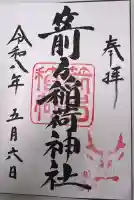 奉拝
箭弓稲荷神社
令和八年五月六日